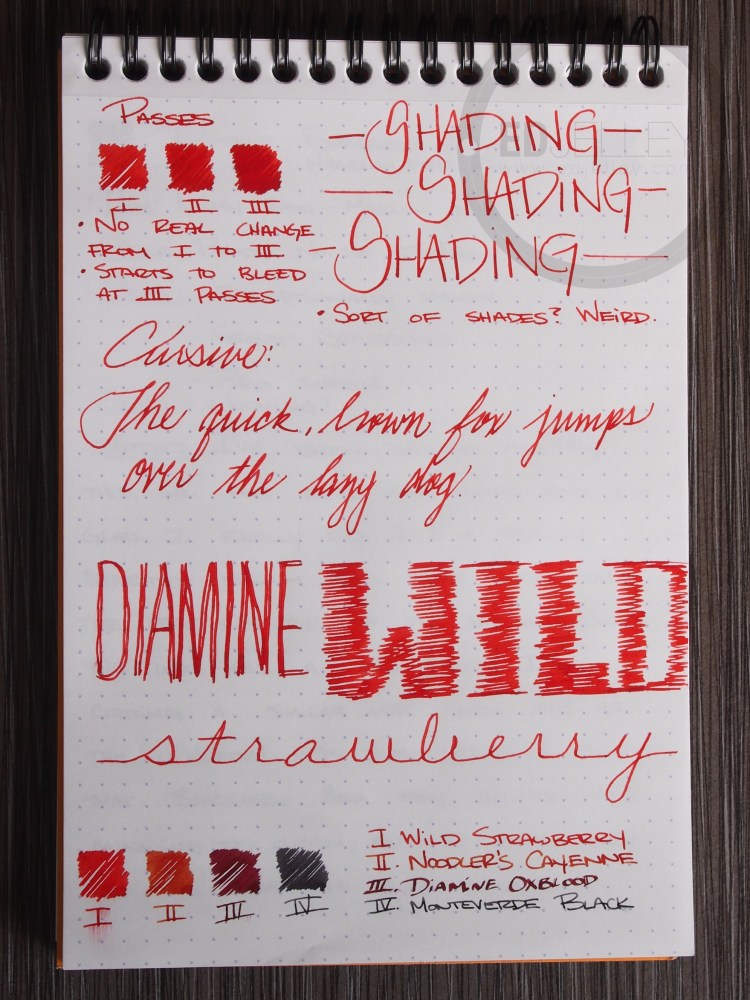 PASSES
I II III
• NO REAL CHANGE
FROM I TO III
• STARTS TO BLEED
AT III PASSES
—SHADING—
—SHADING—
—SHADING—
• SORT OF SHADES? WEIRD.
Cursive:
The quick, brown fox jumps
over the lazy dog.
DIAMINE WILD
strawberry
I II III IV
I. WILD STRAWBERRY
II. NOODLER'S CAYENNE
III. DIAMINE OXBLOOD
IV. MONTEVERDE BLACK